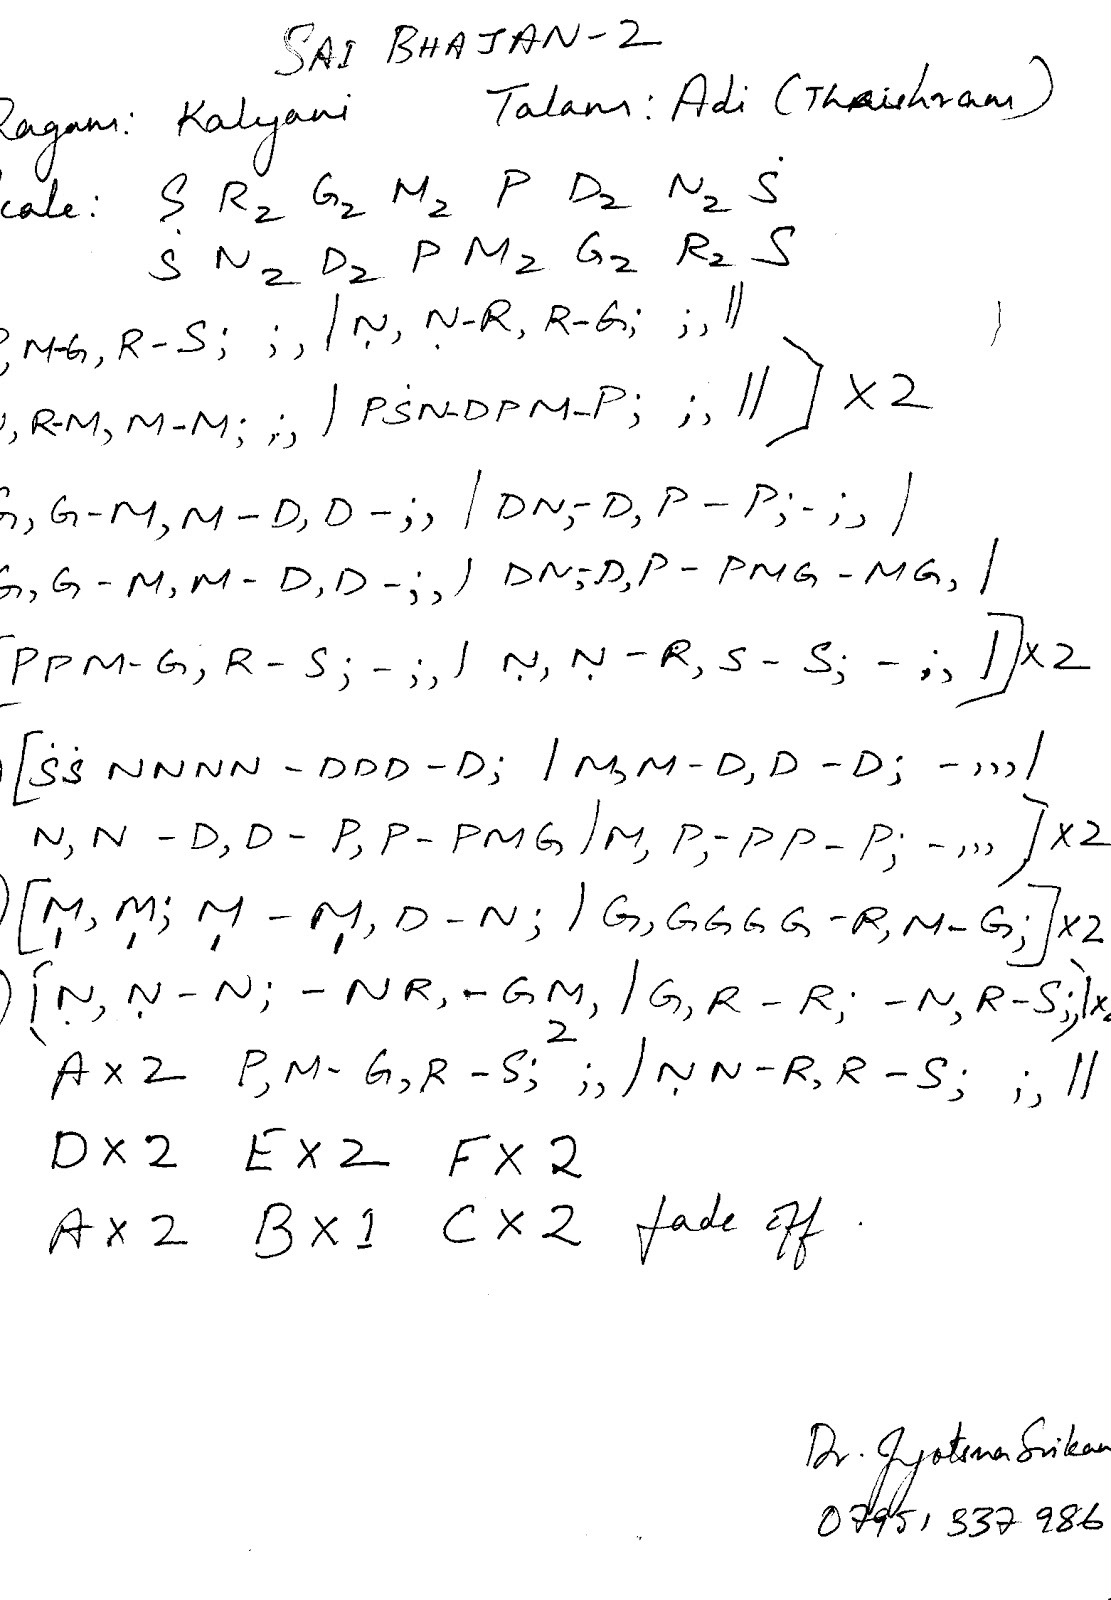 SAI BHAJAN-2
Ragam: Kalyani Talam: Adi (Thrishram)
cale: S R₂ G₂ M₂ P D₂ N₂ Ṡ
Ṡ N₂ D₂ P M₂ G₂ R₂ S
P, M-G, R-S; ;, / Ṇ, Ṇ-R, R-G; ;, //
, R-M, M-M; ;, / PṠN-DPM-P; ;, // ] X2
G, G-M, M-D, D-;, / DN;-D, P-P;-;, /
G, G-M, M-D, D-;, / DN;-D,P-PMG-MG, /
[PPM-G, R-S;-;, / Ṇ, Ṇ-R, S-S; -;, /] X2
[ṠṠ NNNN-DDD-D; / M,M-D, D-D; -,,,/
N, N-D, D-P, P-PMG / M, P,-PP-P; -,,, ] X2
) [Ṃ, Ṃ; Ṃ-Ṃ, D-N; / G, GGGG-R, M-G;] X2
) [Ṇ, Ṇ-N; -NR,-GM₂, / G, R-R; -N, R-S;]x
AX2 P, M-G, R-S; ;, / ṆN-R, R-S; ;, //
DX2 EX2 FX2
AX2 BX1 CX2 fade off.
Dr. Jyotsna Srikan
07951 337 986